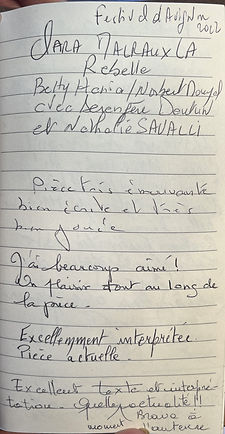 Festival d'Avignon
2022
CLARA MALRAUX LA
Rebelle
Betty Hania / Norbert
avec Bérengère Dautun
et Nathalie SAVALLI
Pièce très émouvante
bien écrite et très
bien jouée
J'ai beaucoup aimé!
Un plaisir tout au long de
la pièce.
Excellemment interprétée
Pièce actuelle.
Excellent texte et interpré-
tation. Quelle actualité!!
Bravo à
moment l'auteure